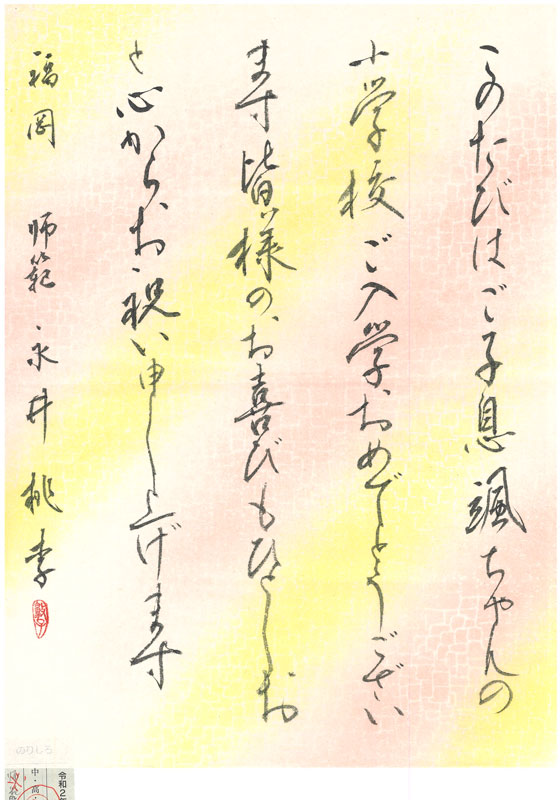 このたびはご子息颯ちゃんの
小学校ご入学、おめでとうござい
ます皆様のお喜びもひとしお
と心からお祝い申し上げます
福岡 師範 永井桃季
のりしろ
令和2
中・高